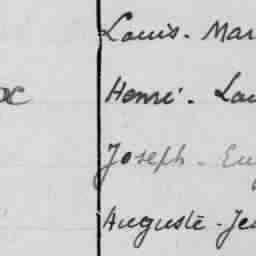 Louis - Mar
Henri - Lou
Joseph - Eug
Auguste - Je